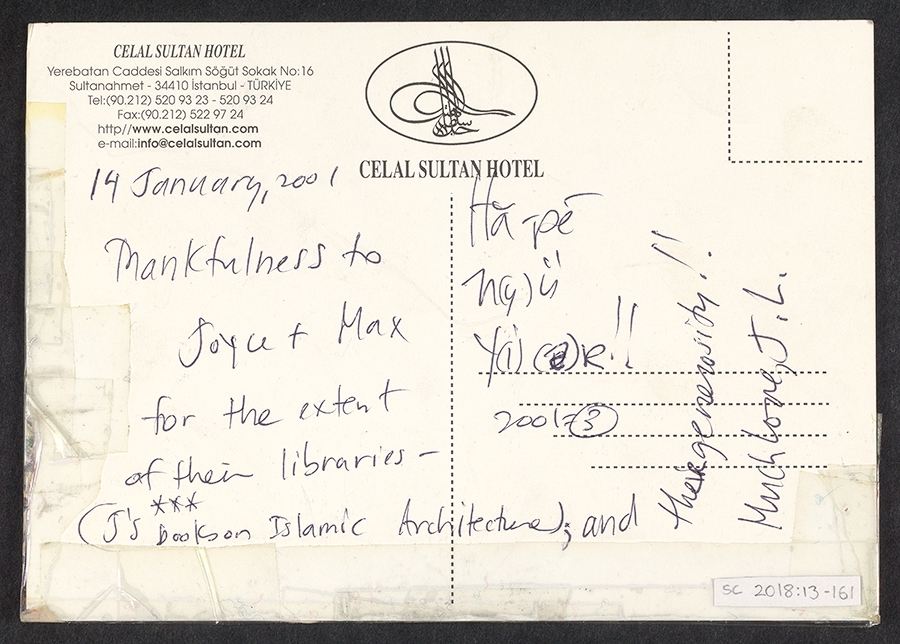 CELAL SULTAN HOTEL
Yerebatan Caddesi Salkım Söğüt Sokak No:16
Sultanahmet - 34410 İstanbul - TÜRKİYE
Tel:(90.212) 520 93 23 - 520 93 24
Fax:(90.212) 522 97 24
http//www.celalsultan.com
e-mail:info@celalsultan.com
CELAL SULTAN HOTEL
14 January, 2001
Thankfulness to
Joyce + Max
for the extent
of their libraries -
***
(J's books on Islamic Architecture); and
their generosity!!
Much love, J.L.
Hă-pē
n(y)ü
y(i)(e)R!!
2001-3
SC 2018:13-161